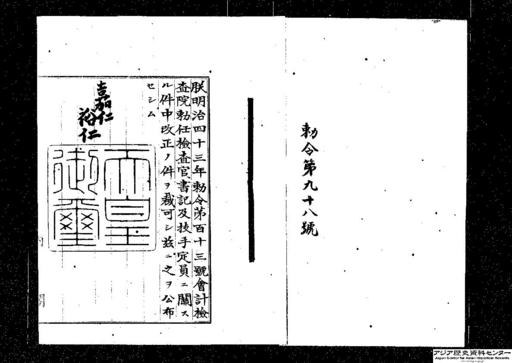 勅令第九十八號
朕明治四十三年勅令第百十三號會計檢
査院勅任檢査官書記及技手定員ニ關ス
ル件中改正ノ件ヲ裁可シ玆ニ之ヲ公布
セシム
嘉仁
裕仁
天皇
御璽
アジア歴史資料センター
Japan Center for Asian Historical Records